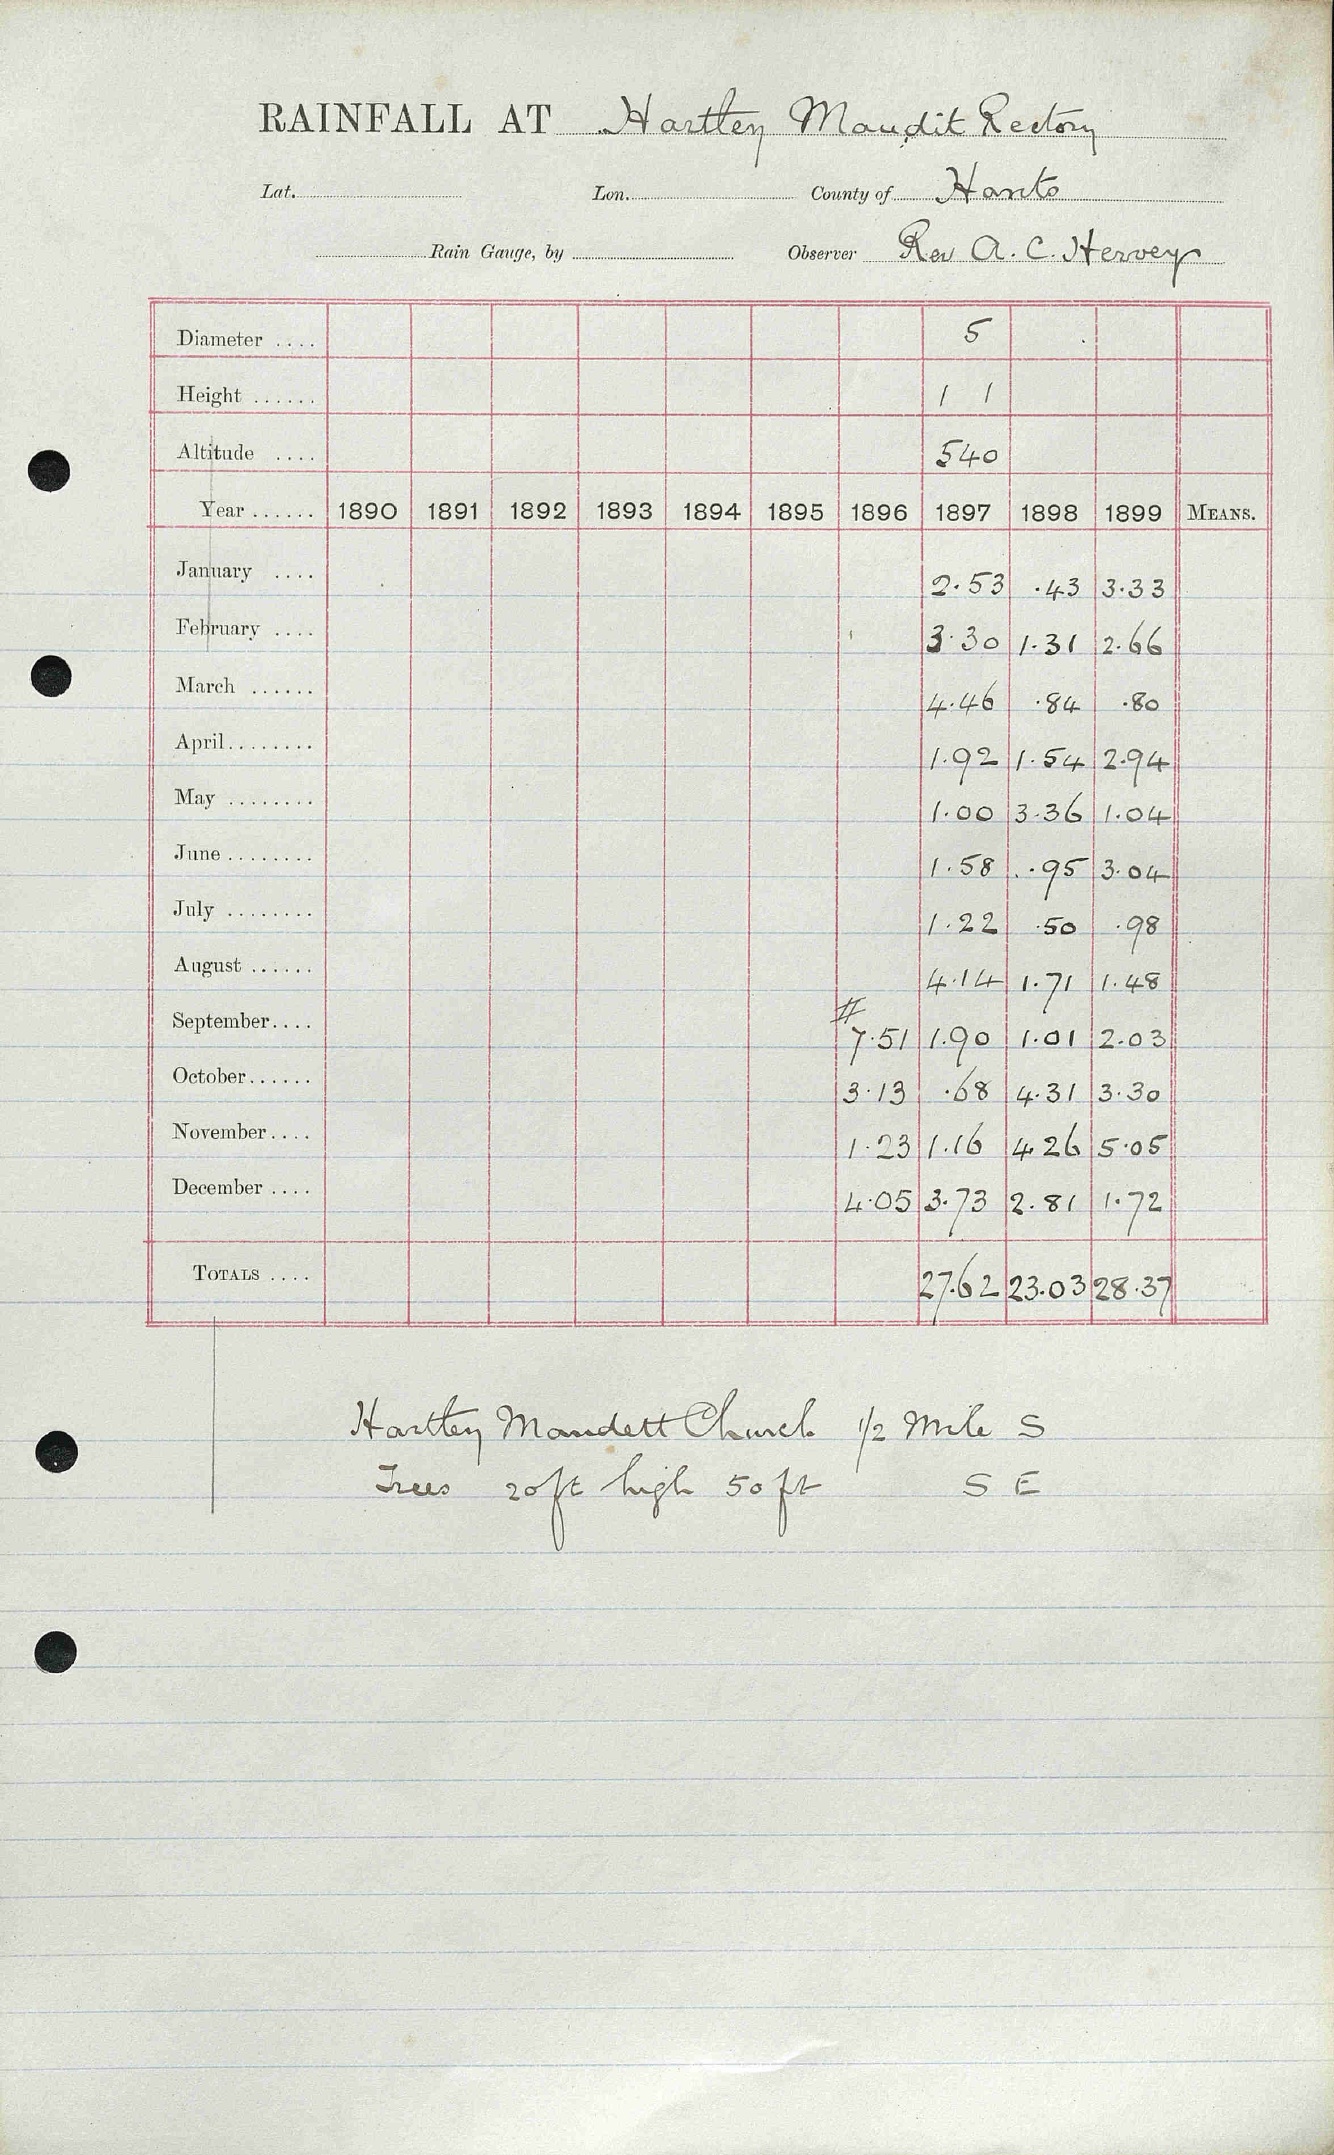 RAINFALL AT Hartley Maudit Rectory
Lat. Lon. County of Hants
Rain Gauge, by Observer Rev A. C. Hervey
Diameter .... 5
Height ...... 1 1
Altitude .... 540
Year ...... 1890 1891 1892 1893 1894 1895 1896 1897 1898 1899 MEANS.
January .... 2.53 .43 3.33
February .... 3.30 1.31 2.66
March ...... 4.46 .84 .80
April........ 1.92 1.54 2.94
May ........ 1.00 3.36 1.04
June ........ 1.58 .95 3.04
July ........ 1.22 .50 .98
August ...... 4.14 1.71 1.48
September.... # 7.51 1.90 1.01 2.03
October...... 3.13 .68 4.31 3.30
November.... 1.23 1.16 4.26 5.05
December .... 4.05 3.73 2.81 1.72
TOTALS .... 27.62 23.03 28.37
Hartley Maudett Church 1/2 Mile S
Trees 20ft high 50 ft S E